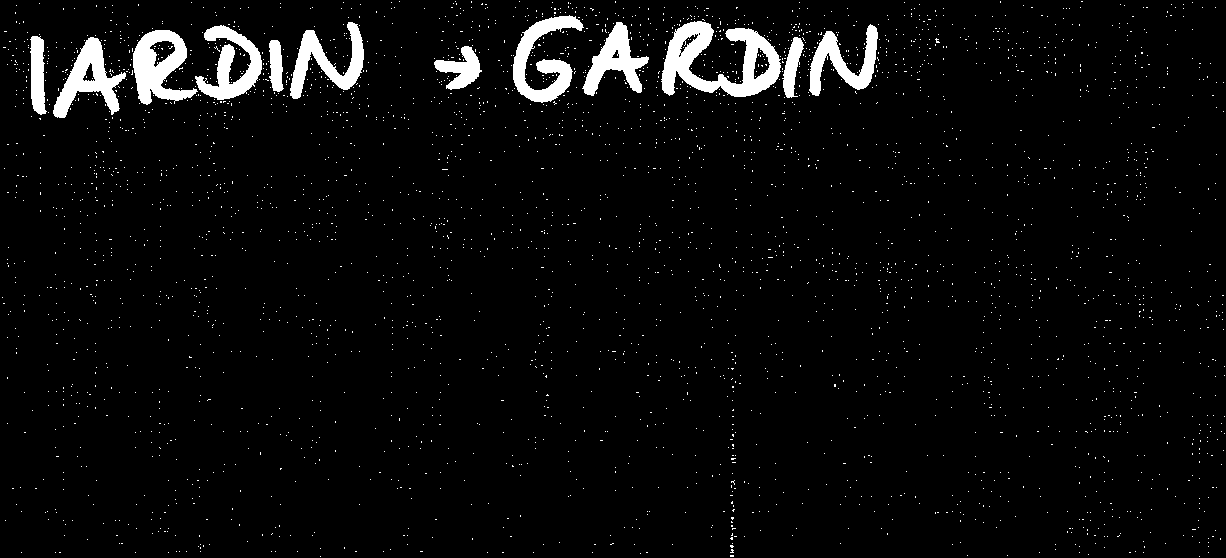 IARDIN → GARDIN